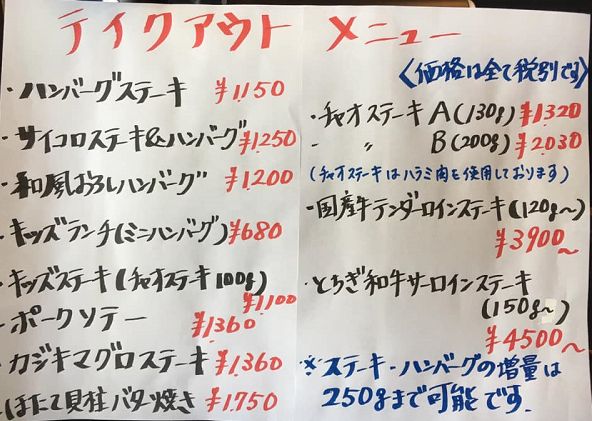 テイクアウト メニュー
・ハンバーグステーキ ¥1,150
・サイコロステーキ&ハンバーグ ¥1,250
・和風おろしハンバーグ ¥1,200
・キッズランチ(ミニハンバーグ) ¥680
・キッズステーキ(チャオステーキ100g)
¥1,100
・ポークソテー ¥1,360
・カジキマグロステーキ ¥1,360
・ほたて貝柱バター焼き ¥1,750
〈価格は全て税別です〉
・チャオステーキ A(130g) ¥1,320
- 〃 B(200g) ¥2,030
(チャオステーキはハラミ肉を使用しております)
・国産牛テンダーロインステーキ(120g〜)
¥3900〜
・とちぎ和牛サーロインステーキ
(150g〜)
¥4500〜
※ステーキ・ハンバーグの増量は
250gまで可能です.